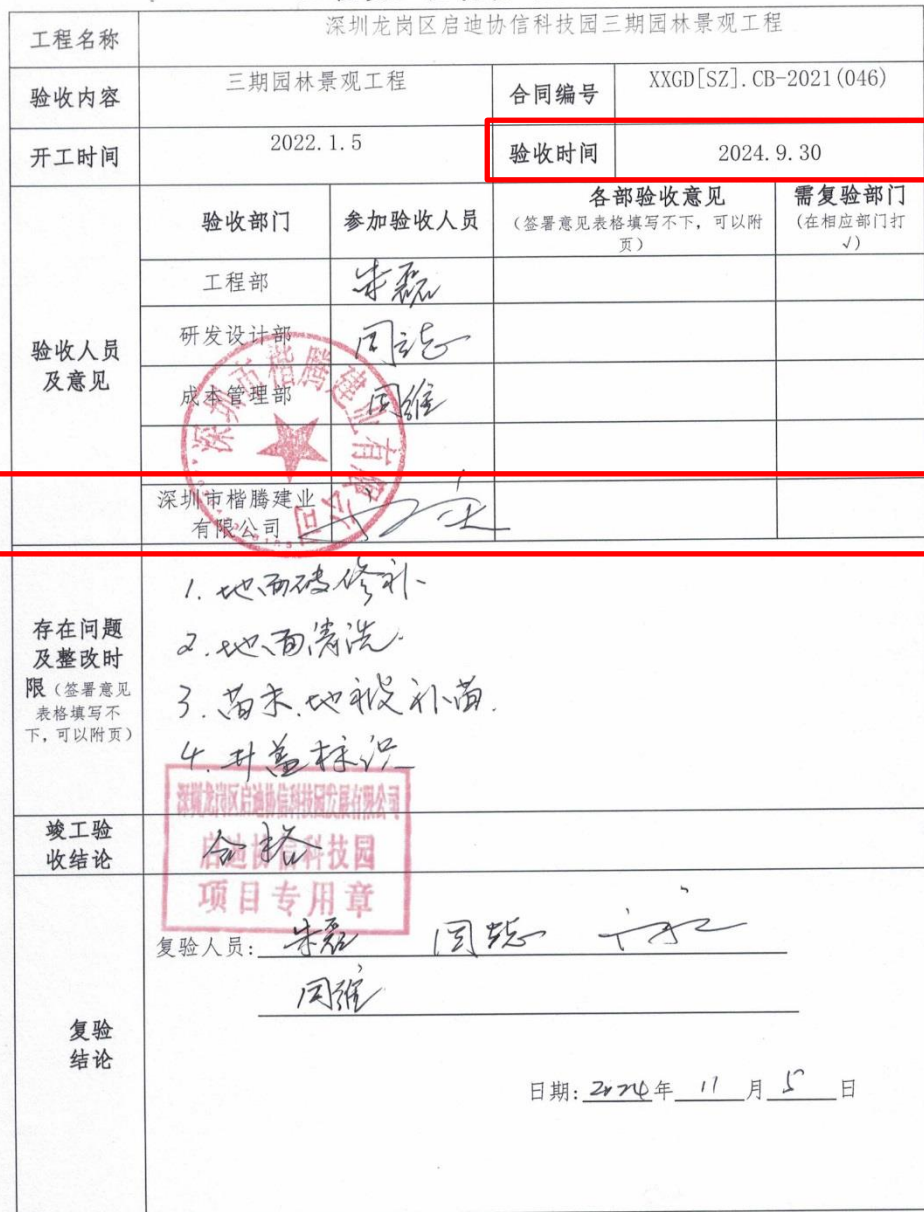 工程名称 深圳龙岗区启迪协信科技园三期园林景观工程
验收内容 三期园林景观工程 合同编号 XXGD[SZ].CB-2021(046)
开工时间 2022.1.5 验收时间 2024.9.30
验收人员
及意见
验收部门 参加验收人员 各部验收意见
(签署意见表格填写不下，可以附
页)
需复验部门
(在相应部门打
√)
工程部 朱磊
研发设计部
成本管理部 周维
深圳市楷腾建业有限公司
深圳市楷腾建业
有限公司
存在问题
及整改时
限(签署意见
表格填写不
下，可以附页)
1. 地面破修补
2. 地面清洗.
3. 苗木.地被补苗.
4. 井盖标识
深圳龙岗区启迪协信科技园发展有限公司
启迪协信科技园
项目专用章
竣工验
收结论
合格
复验
结论
复验人员: 朱磊
周维
日期: 2024年 11 月 5 日